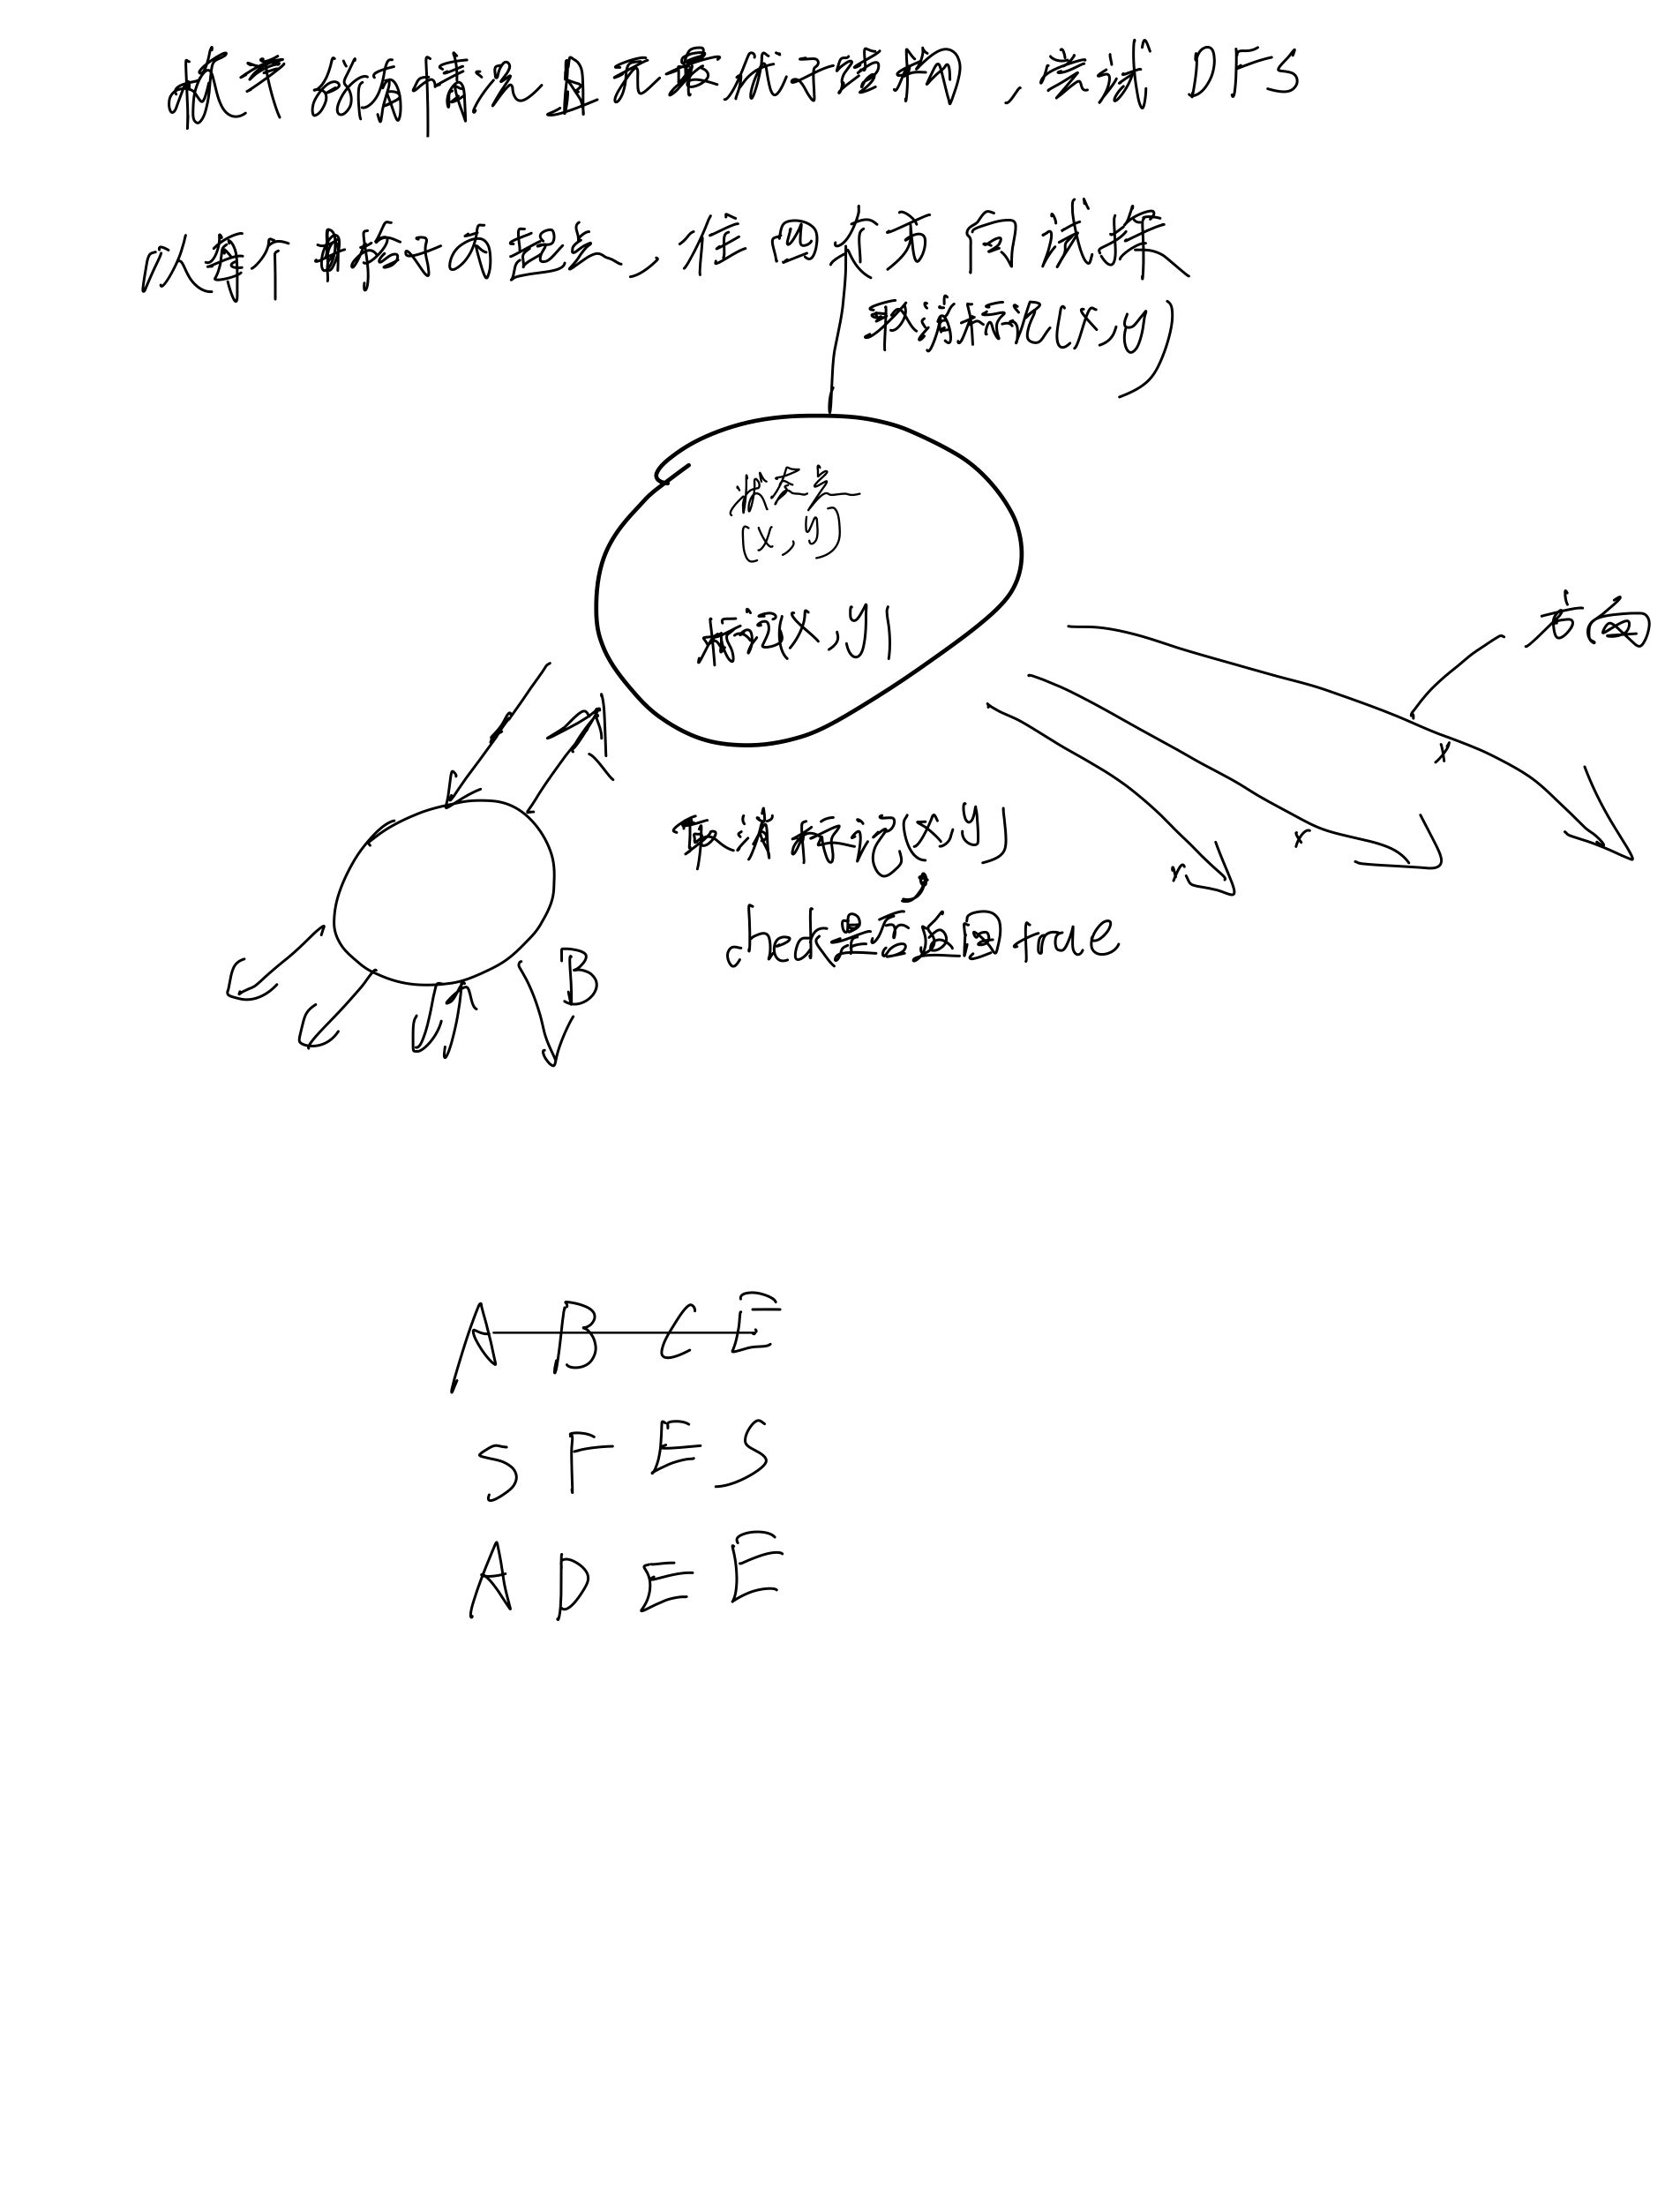 枚举所有情况且无最优子结构，尝试 DFS
以每个单格子为起点，往四个方向试集
取消标记(x,y)
状态为
(x,y)
标记(x,y)
方向
x
x
取消标记(x,y)
check是否返回true
B
A B C E
S F E S
A D E E